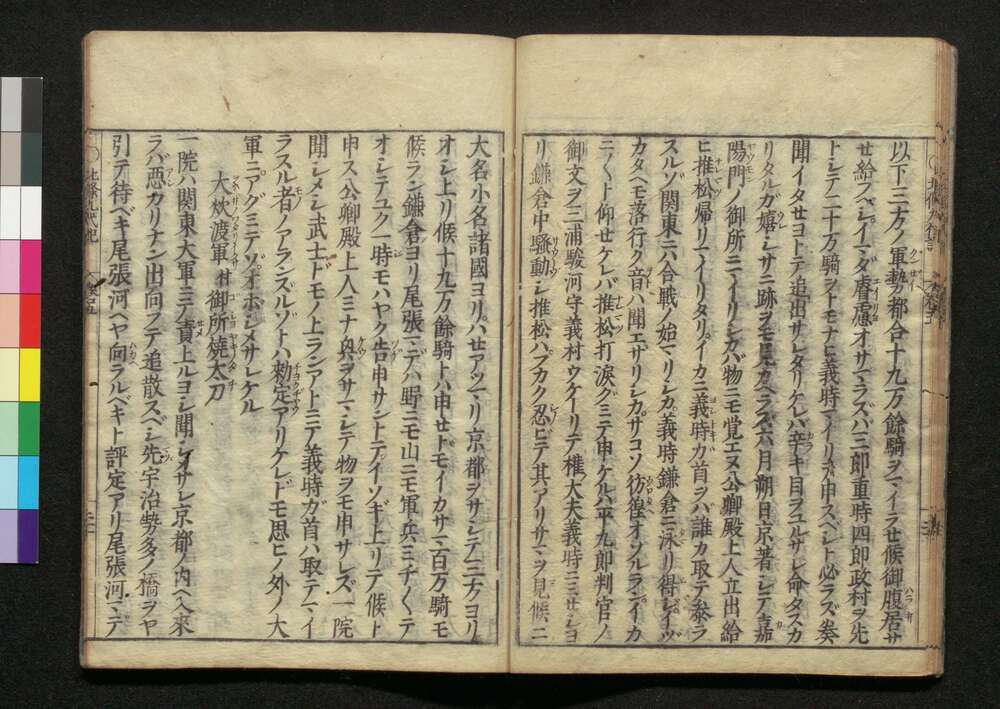 以下三方ノ軍勢都合十九万餘騎ヲマイラせ候御腹居サ
せ給フベシイマダ睿慮オサマラズバ三郎重時四郎政村ヲ先
トシテ二十万騎ヲトモナヒ義時マイリテ申スベシト必ラズ奏
聞イタせヨトテ追出サレタリケレバ辛キ目ヲユルサレ命タスカ
リタルガ嬉シサニ跡ヲモ見カヘラズ六月朔日京著シテ嘉
陽門ノ御所ニマイリシカバ物ニモ覚エヌ公卿殿上人立出給
ヒ推松帰リマイリタリイカニ義時ガ首ヲハ誰カ取テ参ラ
スルゾ関東ニハ合戦ノ始マリシカ義時鎌倉ニ泳リ得シイヅ
カタヘモ落行ク音ハ聞エザリシカサコソ彷徨オソルランイカ
ニ〳〵ト仰せケレバ推松打涙グミテ申ケルハ平九郎判官ノ
御文ヲ三浦駿河守義村ウケトリテ権大夫義時ニミせシヨ
リ鎌倉中騒動シ推松ハフカク忍ビテ其アリサマヲ見候ニ
大名小名諸國ヨリハせアツマリ京都ヲサシテ三方ヨリ
オシ上リ候十九万餘騎トハ申せドモイカサマ百万騎モ
候ラン鎌倉ヨリ尾張マデハ野ニモ山ニモ軍兵ミチ〳〵テ
オシテユク一時モハヤク告申サントテイソギ上リテ候ト
申ス公卿殿上人ミナ興ヲサマシテ物ヲモ申サレズ一院
聞シメシ武士ドモノ上ランアトニテ義時ガ首ハ取テマイ
ラスル者ノアランズルゾトハ勅定アリケレドモ思ヒノ外ノ大
軍ニアグミテゾオボシメサレケル
大炊渡軍 付 御所焼太刀
一院ハ関東大軍ニテ責上ルヨシ聞シメサレ京都ノ内ヘ入來
ラバ悪カリナン出向フテ追散スベシ先宇治勢多ノ橋ヲヤ
引テ待ベキ尾張河ヘヤ向ラルベキト評定アリ尾張河マデ